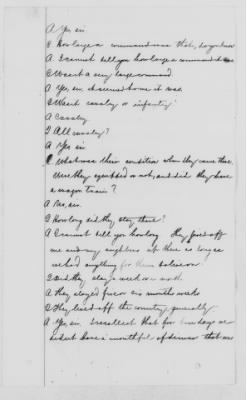 A Yes, sir.
Q How large a command was that, do you know
A I cannot tell you how large a command it was
Q Wasn't a very large command.
A Yes, sir, it seemed to me it was.
Q Wasn't cavalry or infantry?
A Cavalry
Q All cavalry?
A Yes sir
Q What was their condition when they came there.
Were they equipped or not, and did they have
a wagon train?
A No, sir.
Q How long did they stay there?
A I cannot tell you how long. They fed off
me and my neighbors up there as long as
we had anything for them to live on
Q Did they stay a week or a month.
A They stayed five or six weeks
Q They lived off the country, generally
A Yes, sir. I recollect that for days we
didn't have a mouthful of dinner that was